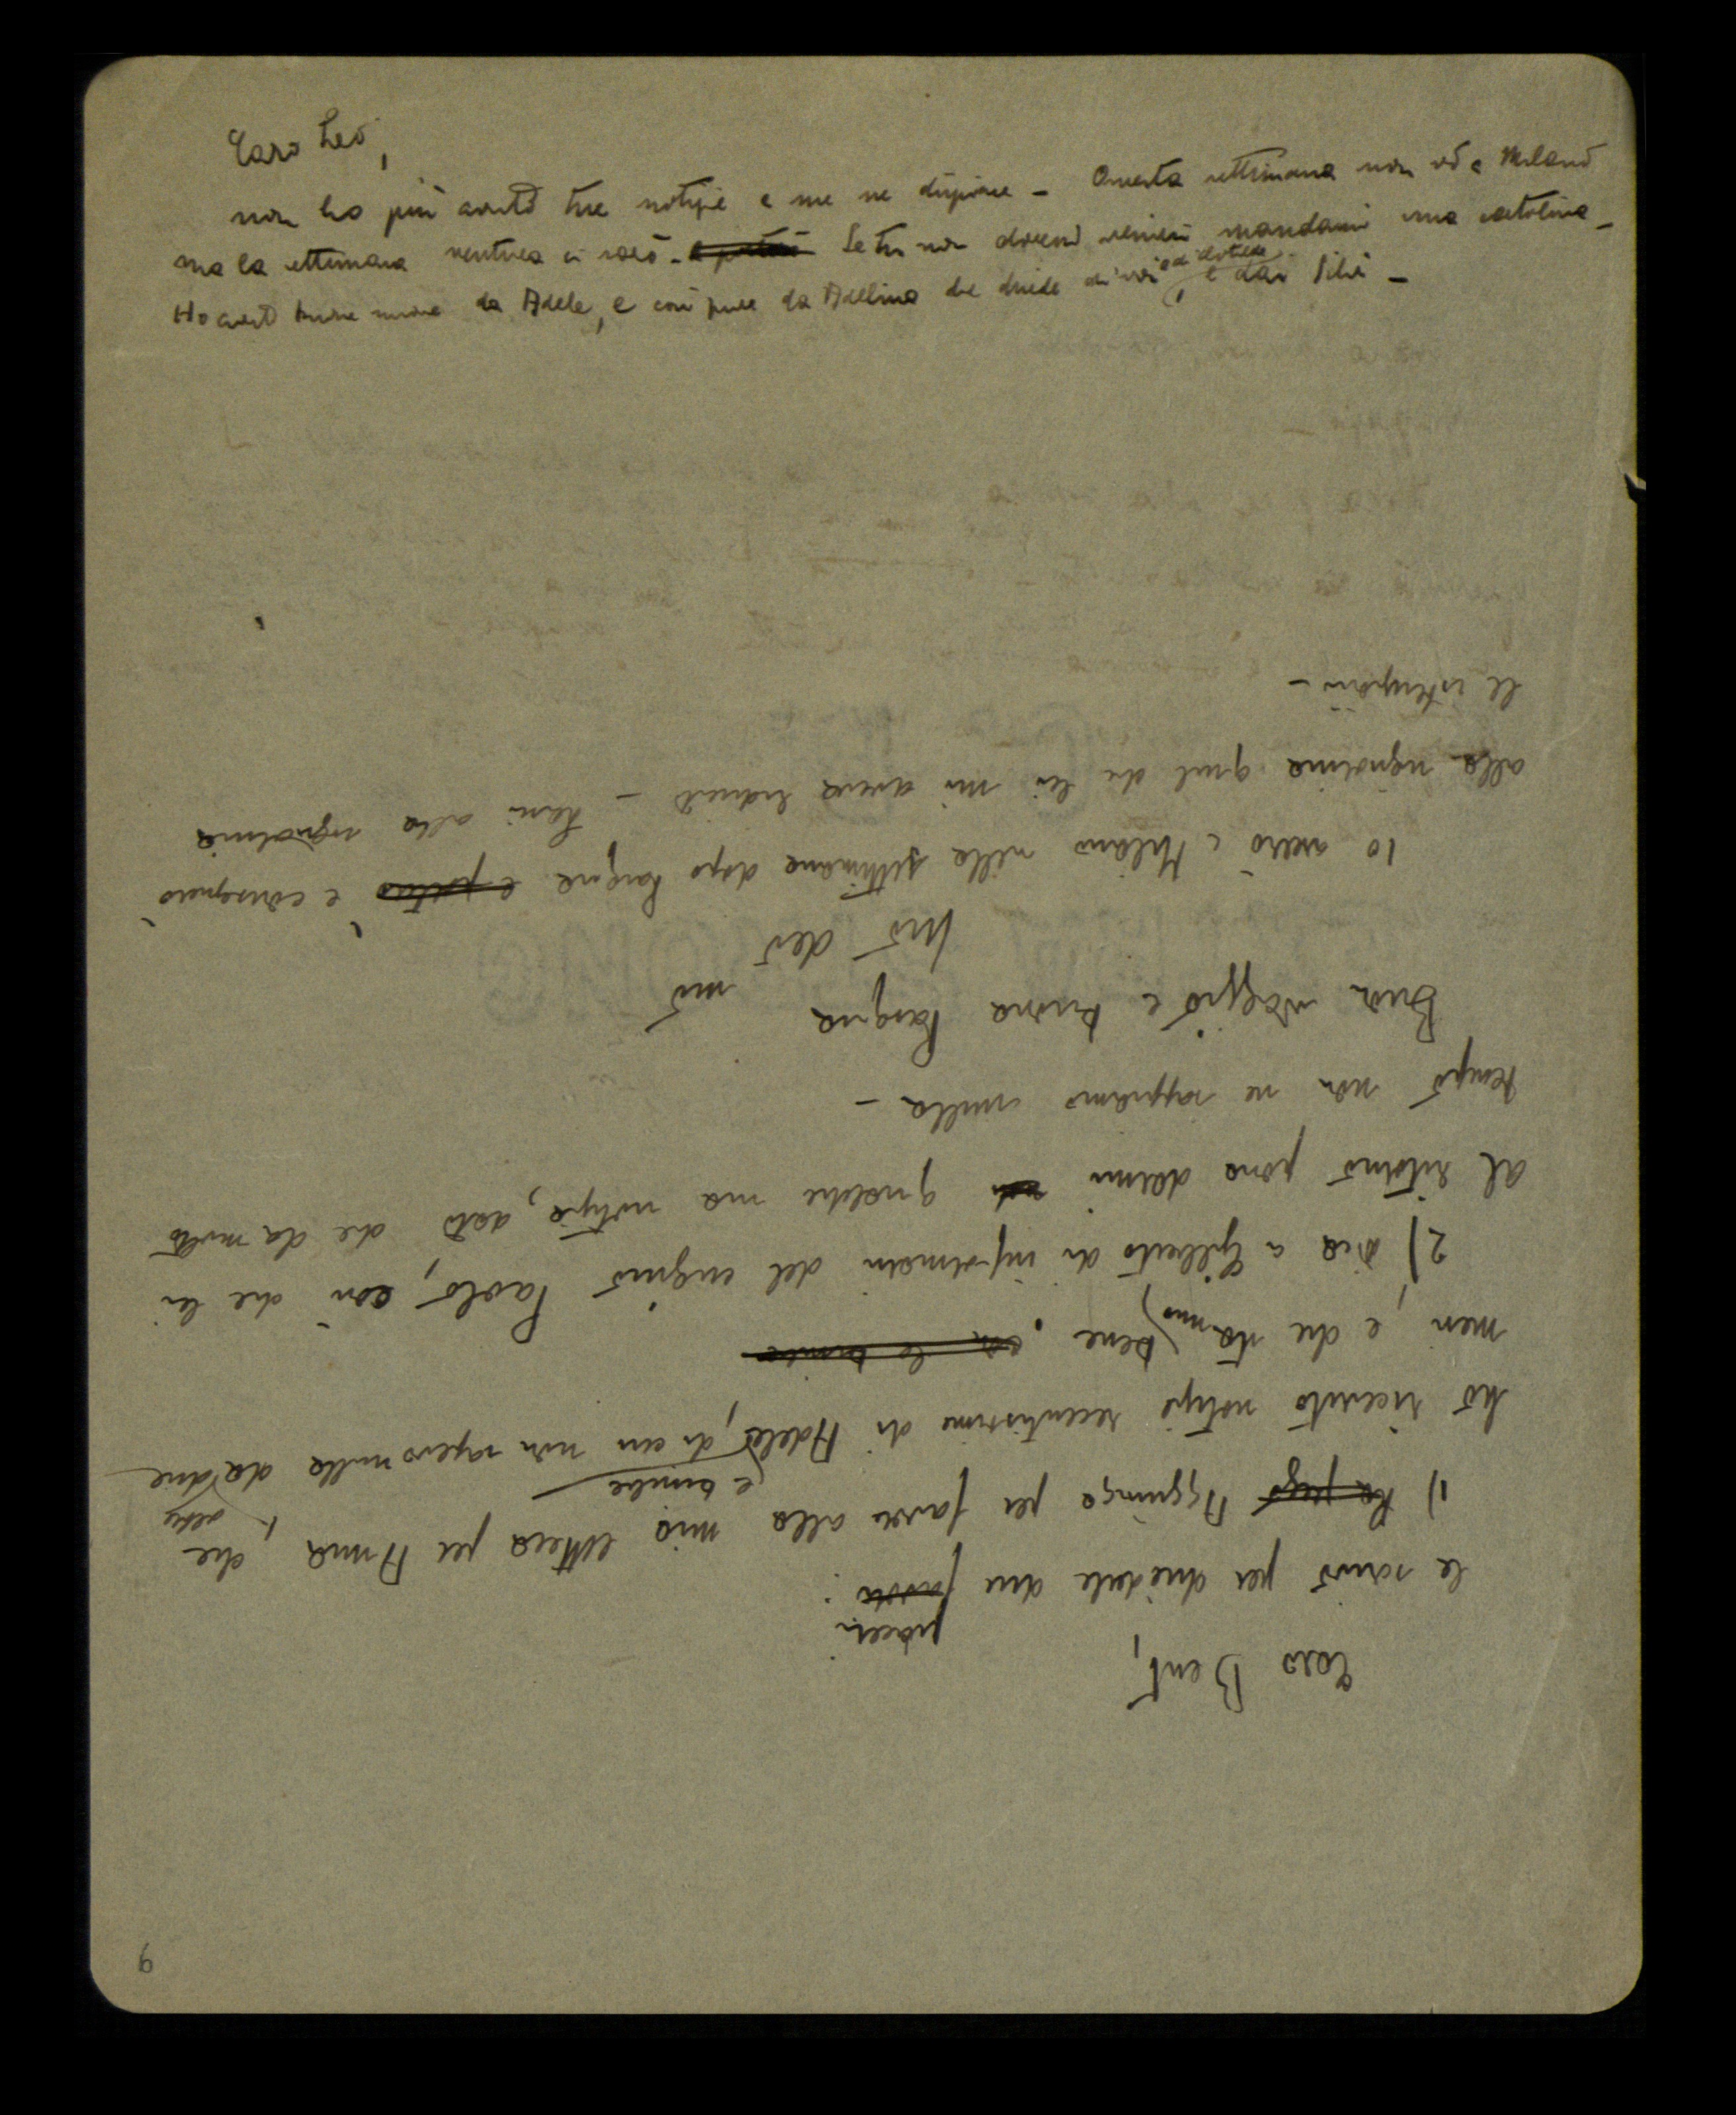 Caro Leo,
non ho più avuto tue notizie e me ne dispiace - Questa settimana non vò a Milano
ma la settimana ventura ci sarò - Se tu non dovessi venirci mandami una cartolina -
Ho avuto buone nuove da Adele, e così pure da Adelina che chiede di voi e di Clotilde e dai Silvi -
Caro Bent,
le scrivo per chiederle due piaceri:
1) Aggiunga per favore alla mia lettera per Anna, che
ho ricevuto notizie recentissime di Adele e bimbe, di cui non sapevo nulla da oltre due
mesi, e che stanno bene.
2) Dica a Gilberto di informarsi del cugino Paolo, così che lei
al ritorno possa darmi qualche sua notizia, dato che da molto
tempo non ne sappiamo nulla -
Buon viaggio e buona Pasqua
suo
Io sarò a Milano nella settimana dopo Pasqua e consegnerò
alla signorina quel che lei mi aveva chiesto - Lasci alla signorina
le istruzioni -
9